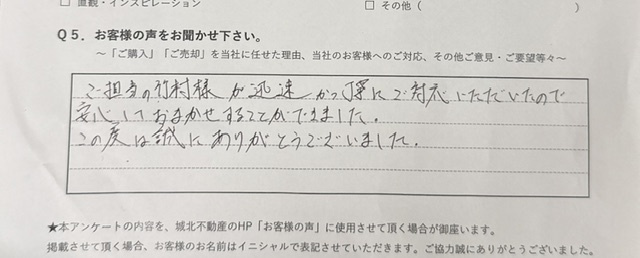 □ 直観・インスピレーション　□ その他（　　　）
Q5．お客様の声をお聞かせ下さい。
～「ご購入」「ご売却」を当社に任せた理由、当社のお客様へのご対応、その他ご意見・ご要望等々～
ご担当の竹村様が迅速かつ丁寧にご対応いただいたので
安心しておまかせすることができました。
この度は誠にありがとうございました。
★本アンケートの内容を、城北不動産のHP「お客様の声」に使用させて頂く場合が御座います。
掲載させて頂く場合、お客様のお名前はイニシャルで表記させていただきます。ご協力誠にありがとうございました。